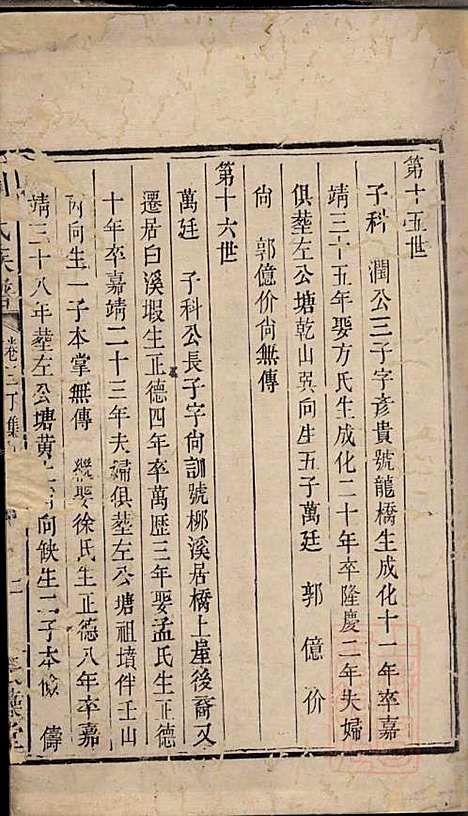 第十五世
子科 潤公三子字彥貴號龍橋生成化十一年卒嘉
靖三十五年娶方氏生成化二十年卒隆慶二年夫婦
俱塟左公塘乾山巽向生五子萬廷 郭 億 价
尙 郭億价尙無傳
第十六世
萬廷 子科公長子字尙訓號梛溪居橋上屋後裔又
遷居白溪塅生正德四年卒萬歷三年娶孟氏生正德
十年卒嘉靖二十三年夫婦俱塟左公塘祖墳伴壬山
丙向生一子本掌無傳 繼娶徐氏生正德八年卒嘉
靖三十八年塟左公塘黃 向缺生二子本儉 儔
氏族譜 卷二丁集